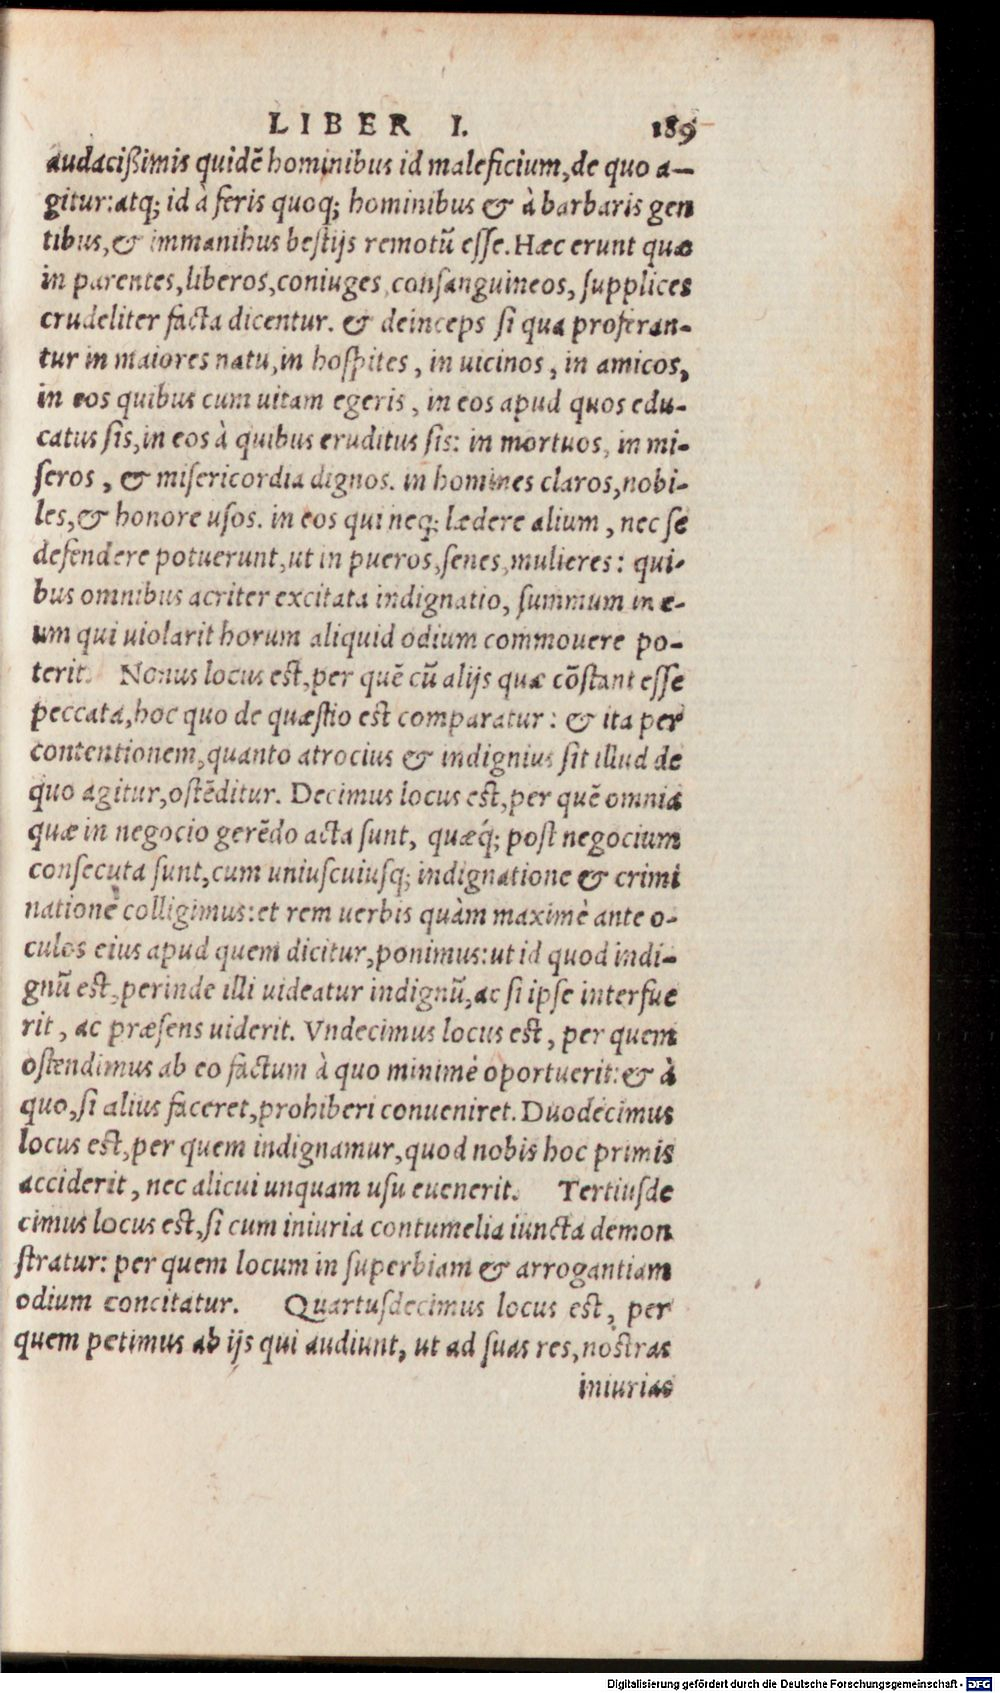 LIBER I. 189
audacißimis quidē hominibus id maleficium, de quo a-
gitur: atq; id à feris quoq; hominibus & à barbaris gen
tibus, & immanibus bestijs remotū esse. Hæc erunt quæ
in parentes, liberos, coniuges, consanguineos, supplices
crudeliter facta dicentur. & deinceps si qua proferan-
tur in maiores natu, in hospites, in uicinos, in amicos,
in eos quibus cum uitam egeris, in eos apud quos edu-
catus sis, in eos à quibus eruditus sis: in mortuos, in mi-
seros, & misericordia dignos. in homines claros, nobi-
les, & honore usos. in eos qui neq; lædere alium, nec se
defendere potuerunt, ut in pueros, senes, mulieres: qui-
bus omnibus acriter excitata indignatio, summum in e-
um qui uiolarit horum aliquid odium commouere po-
terit. Nonus locus est, per quē cū alijs quæ cōstant esse
peccata, hoc quo de quæstio est comparatur: & ita per
contentionem, quanto atrocius & indignius sit illud de
quo agitur, ostēditur. Decimus locus est, per quē omnia
quæ in negocio gerēdo acta sunt, quæq́; post negocium
consecuta sunt, cum uniuscuiusq; indignatione & crimi
natione colligimus: et rem uerbis quàm maximè ante o-
culos eius apud quem dicitur, ponimus: ut id quod indi-
gnū est, perinde illi uideatur indignū, ac si ipse interfue
rit, ac præsens uiderit. Vndecimus locus est, per quem
ostendimus ab eo factum à quo minimè oportuerit: & à
quo, si alius faceret, prohiberi conueniret. Duodecimus
locus est, per quem indignamur, quod nobis hoc primis
acciderit, nec alicui unquam usu euenerit. Tertiusde
cimus locus est, si cum iniuria contumelia iuncta demon
stratur: per quem locum in superbiam & arrogantiam
odium concitatur. Quartusdecimus locus est, per
quem petimus ab ijs qui audiunt, ut ad suas res, nostras
iniurias
Digitalisierung gefördert durch die Deutsche Forschungsgemeinschaft - DFG